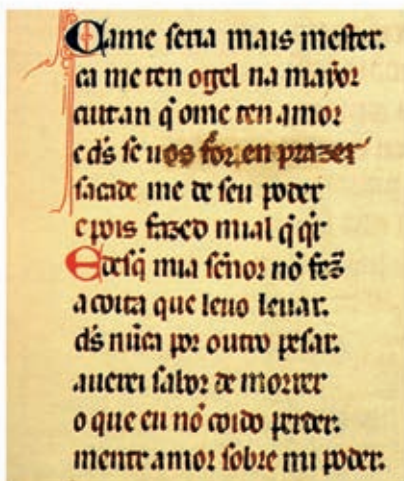 Came seria mais mester.
ca me ten ogel na mayor
cuitan q̇ ome ten amor
e d̄s se uos for, en prazer
sacade me de seu poder
e pois fazed mial q̇ q̇r
Edesq̇ mia sẽnor nõ fez
a coita que leuo leuar.
d̄s nũca por outro pesar.
auerei sabor de morrer
o que eu nõ coido perder.
mentr amor sobre mi poder.